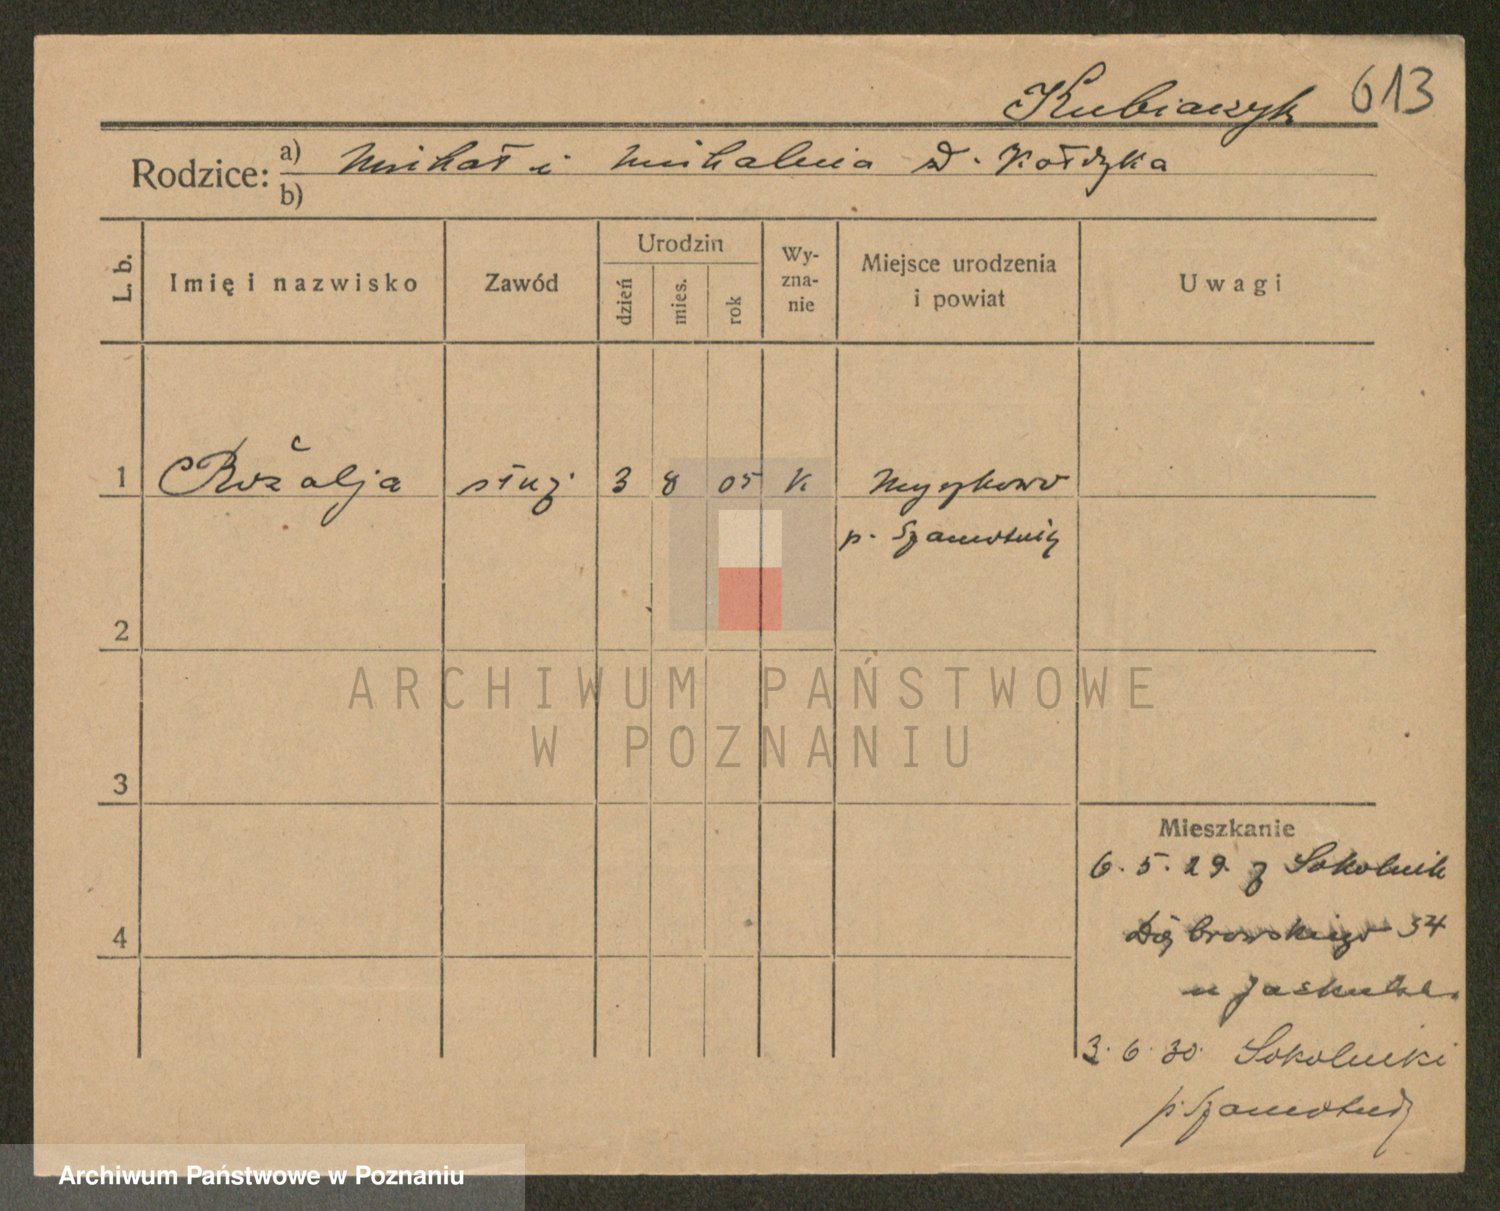 Kubiaczyk 613
Rodzice: a) Michał i Michalina d. Kołdyka
b)
L. b.
Imię i nazwisko
Zawód
Urodzin
dzień
mies.
rok
Wy-
zna-
nie
Miejsce urodzenia
i powiat
Uwagi
1 Rozalja służ. 3 8 05 k Myszkowo
p. Szamotuły
2
3
4
Mieszkanie
6.5.29. z Sokolnik
Dąbrowskiego 34
u
3.6.30. Sokolniki
p. Szamotuły
ARCHIWUM PAŃSTWOWE
W POZNANIU
Archiwum Państwowe w Poznaniu